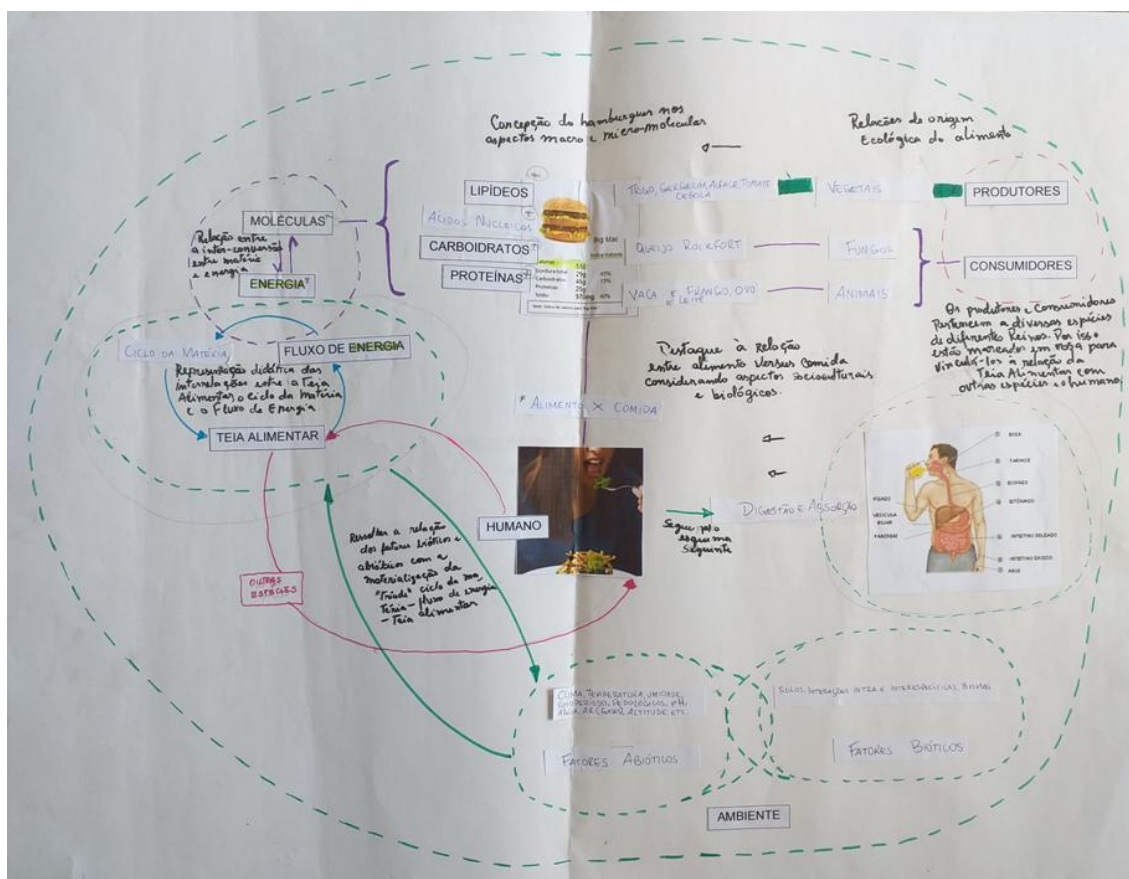 Concepção do hamburguer nos
aspectos macro e micro-molecular
Relações de origem
Ecológica do alimento
LIPÍDEOS
ÁCIDOS NUCLEICOS
CARBOIDRATOS
PROTEÍNAS
MOLÉCULAS
Relação entre
a inter-conversão
entre matéria
e energia
ENERGIA
Big Mac
TRIGO, GERGELIM, ALFACE, TOMATE
CEBOLA
VEGETAIS
PRODUTORES
QUEIJO ROCKFORT
FUNGOS
CONSUMIDORES
VACA E LEITE, FRANGO, OVO
ANIMAIS
Os produtores e consumidores
Pertencem a diversas espécies
de diferentes Reinos. Por isso
estão marcados em rosa para
vinculá-los à relação da
Teia Alimentar com
outras espécies e o humano
CICLO DA MATÉRIA
FLUXO DE ENERGIA
Representação didática das
interrelações entre a Teia
Alimentar, o ciclo da matéria
e o Fluxo de Energia
TEIA ALIMENTAR
Destaque à Relação
entre alimento versus comida
considerando aspectos socioculturais
e biológicos.
* ALIMENTO X COMIDA
HUMANO
Segue pelo
esquema
seguinte
DIGESTÃO E ABSORÇÃO
BOCA
FARINGE
ESÔFAGO
ESTÔMAGO
FÍGADO
VESÍCULA
BILIAR
PÂNCREAS
INTESTINO DELGADO
INTESTINO GROSSO
ÂNUS
Ressaltar a relação
dos fatores bióticos e
abióticos com a
materialização da
"Tríade" ciclo da ma
téria - fluxo de energia
- Teia alimentar
OUTRAS
ESPÉCIES
CLIMA, TEMPERATURA, UMIDADE,
FOTOPERÍODO, PEDOLÓGICOS, PH,
ALTITUDE, ETC.
FATORES ABIÓTICOS
SOLOS, INTERAÇÕES INTRA E INTERESPECÍFICAS, BIOMAS
FATORES BIÓTICOS
AMBIENTE